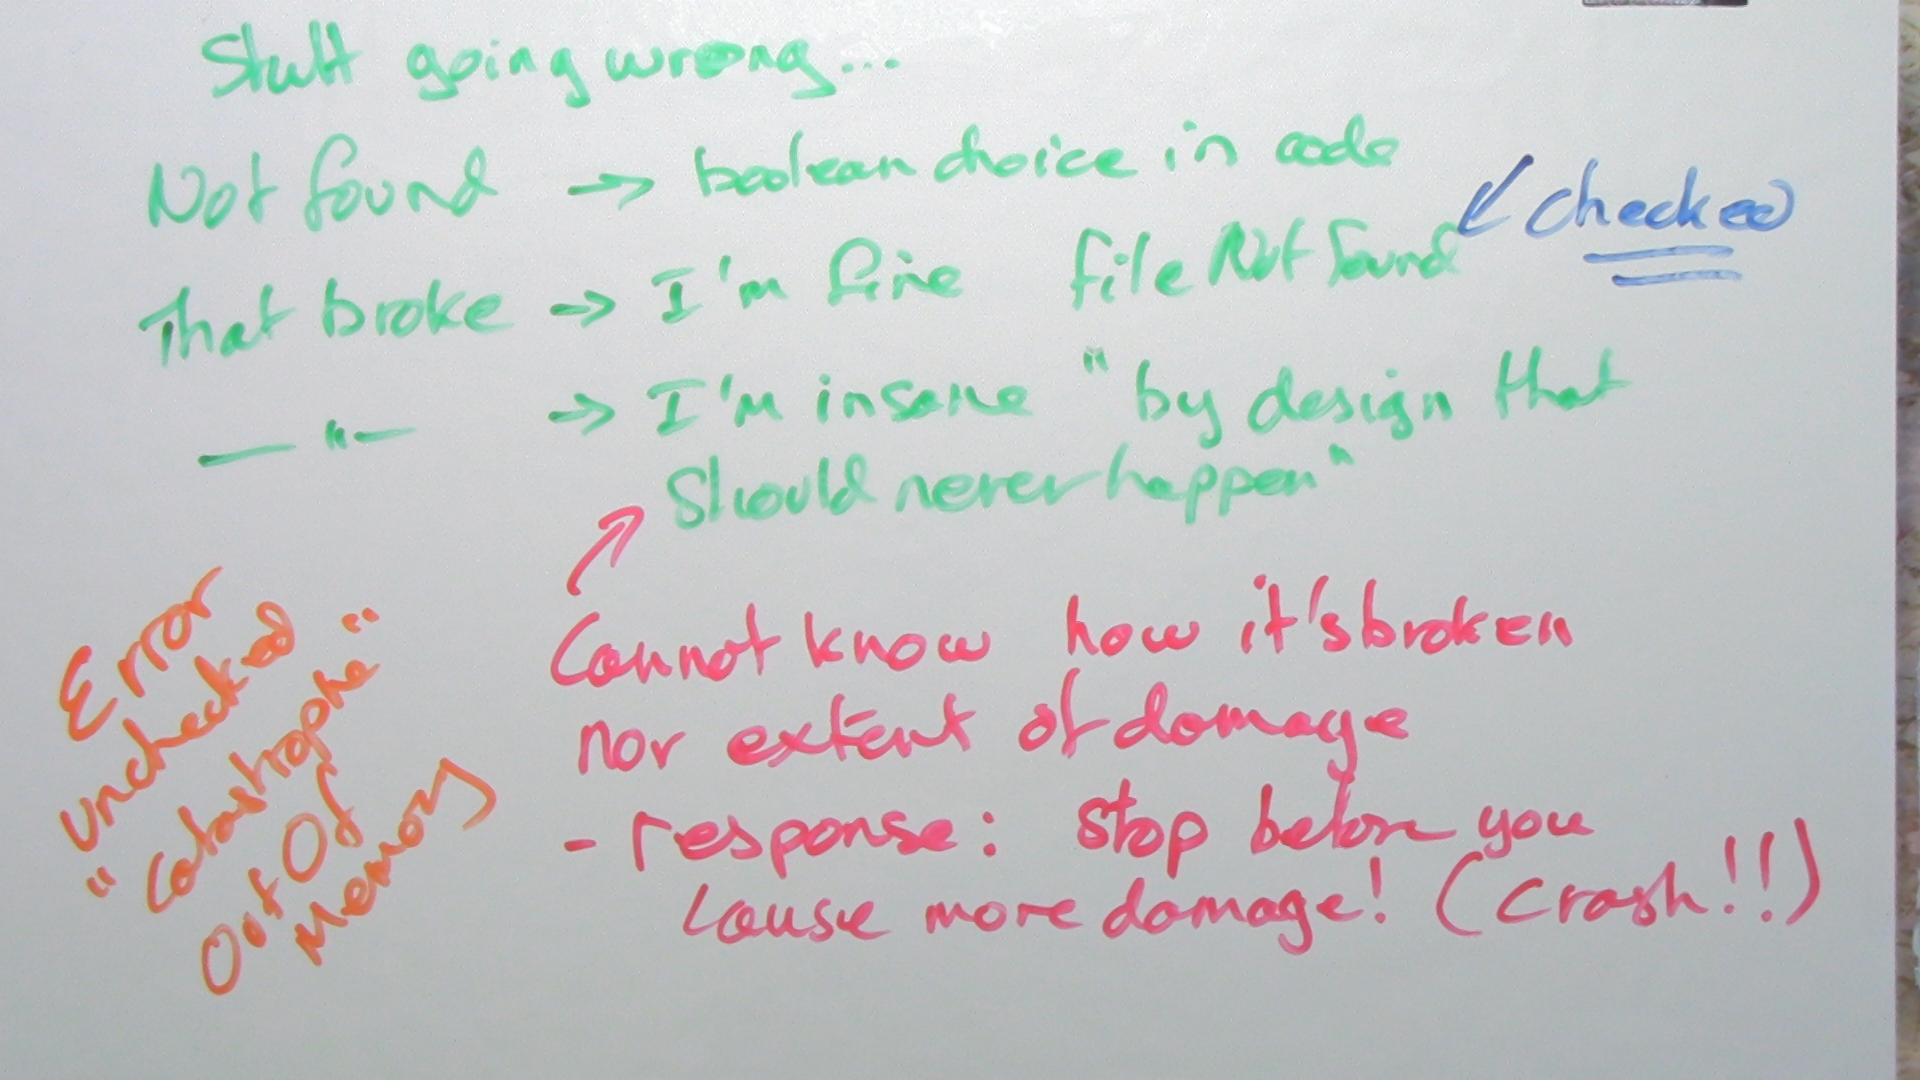 Stuff going wrong...
Not found → boolean choice in code
checked
That broke → I'm fine file Not Found
— " — → I'm insane "by design that
should never happen"
Cannot know how it's broken
nor extent of damage
- response: stop before you
cause more damage! (crash!!)
Error
unchecked
"catastrophe"
Out Of
Memory